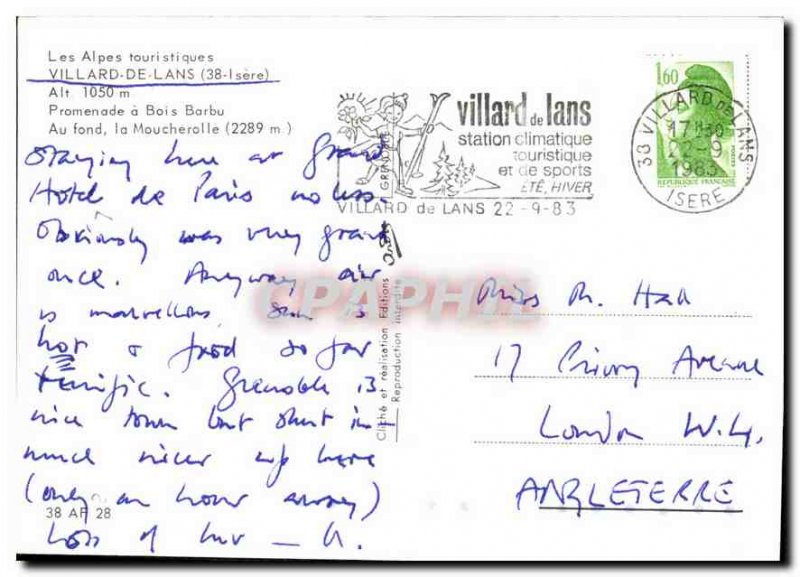 Les Alpes touristiques
VILLARD-DE-LANS (38-Isère)
Alt. 1050 m
Promenade à Bois Barbu
Au fond, la Moucherolle (2289 m.)
Staying here at Grand
Hotel de Paris no less.
Obviously was very grand
once. Anyway air
is marvellous, sun is
hot & food so far
terrific. Grenoble is
nice town but shut in -
much nicer up here
(only an hour away)
Lots of love —
38 AF 28
villard de lans
station climatique
touristique
et de sports
ÉTÉ, HIVER
VILLARD de LANS 22-9-83
1,60
REPUBLIQUE FRANÇAISE
38 VILLARD DE LANS
17H30
22-9
1983
ISERE
GRENOBLE
Cliché et réalisation Editions
Reproduction interdite
CPAPHIL
Miss M. Hall
17 Priory Avenue
London W.4.
ANGLETERRE